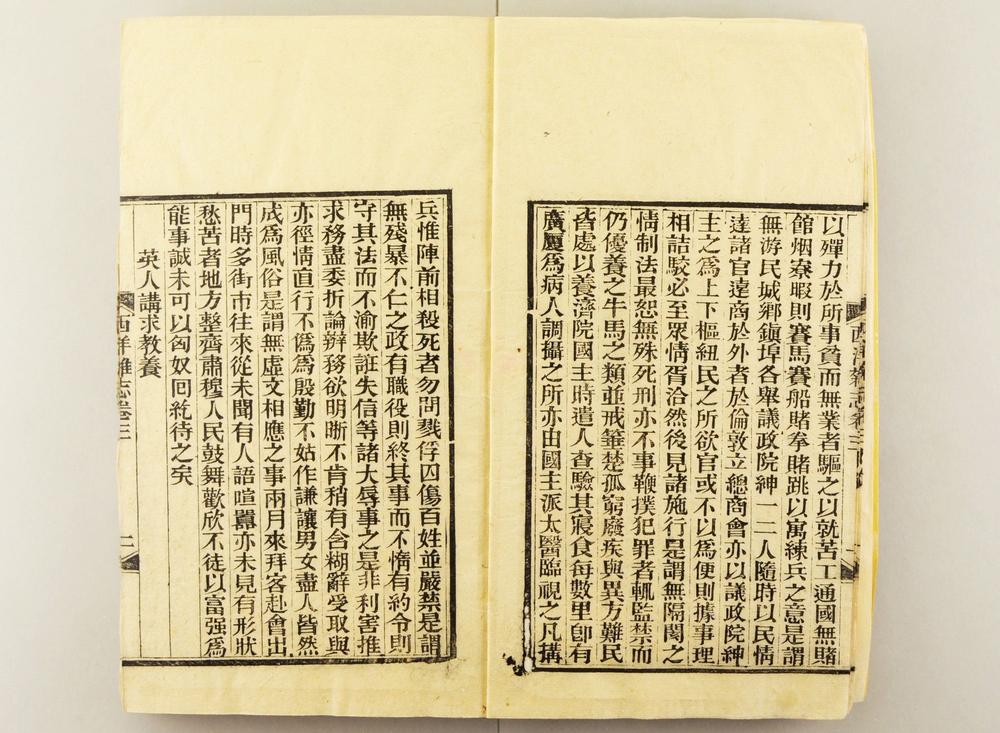 以殫力於所事貧而無業者驅之以就苦工通國無賭
館烟寮暇則賽馬賽船賭拳賭跳以寓練兵之意是謂
無游民城鄉鎮埠各舉議政院紳一二人隨時以民情
達諸官遠商於外者於倫敦立總商會亦以議政院紳
主之為上下樞紐民之所欲官或不以為便則據事理
相詰駮必至眾情胥洽然後見諸施行是謂無隔閡之
情制法最恕無殊死刑亦不事鞭撲犯罪者輒監禁而
仍優養之牛馬之類並戒箠楚孤窮廢疾與異方難民
皆處以養濟院國主時遣人查驗其寢食每數里卽有
廣厦為病人調攝之所亦由國主派太醫臨視之凡搆
西洋雜志卷三
兵惟陣前相殺死者勿問戮俘囚傷百姓並嚴禁是謂
無殘暴不仁之政有職役則終其事而不惰有約令則
守其法而不渝欺誑失信等諸大辱事之是非利害推
求務盡委折論辯務欲明晰不肯稍有含糊辭受取與
亦徑情直行不偽為殷勤不姑作謙讓男女盡人皆然
成為風俗是謂無虛文相應之事兩月來拜客赴會出
門時多街市往來從未聞有人語喧囂亦未見有形狀
愁苦者地方整齊肅穆人民鼓舞歡欣不徒以富强為
能事誠未可以匈奴回紇待之矣
英人講求教養
西洋雜志卷三
二